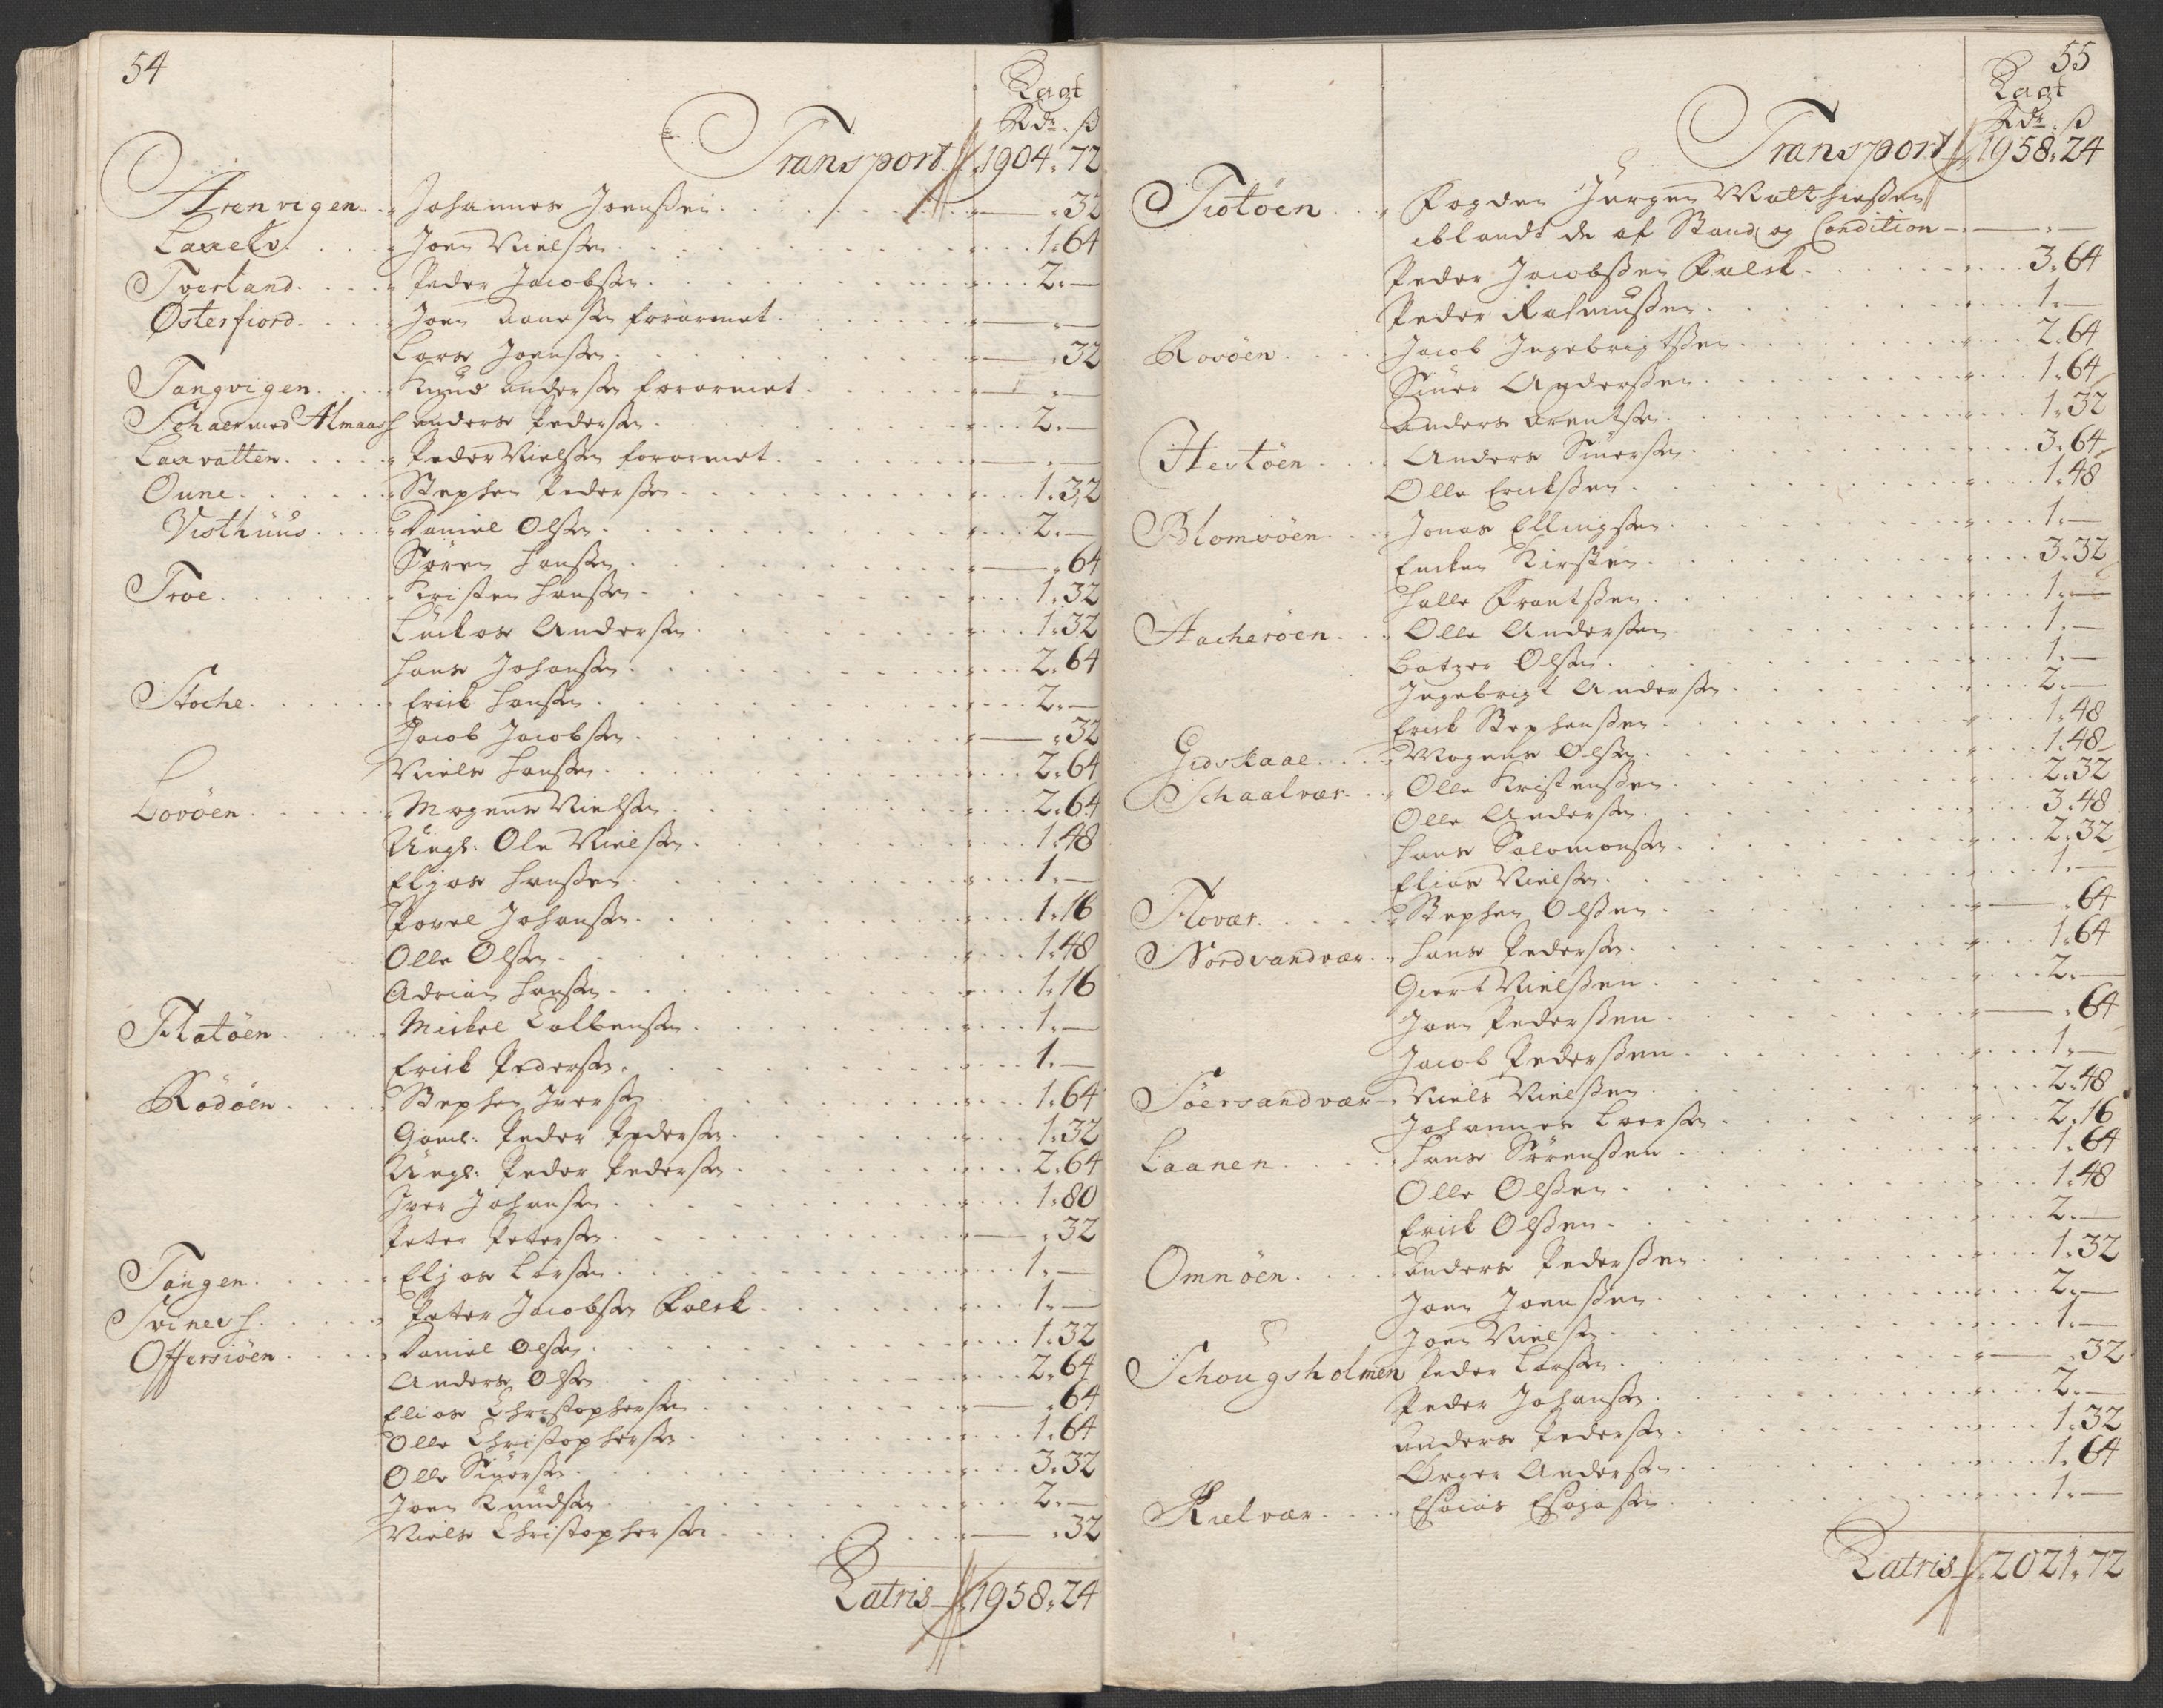 54
Lagt
Rdr. ß
Transport 1904. 72
Arenvigen. Johannes Joenßen 32
Laxelv. Joen Nielßen 1. 64
Tverland. Peder Jacobßen 2. —
Østerfiord. Joen forarmet —
Lars Joenßen 32
Tangvigen. Knud Anderßen forarmet —
Schaer med Almaas Anders Pederßen 2. —
Laxvatten. Peder Nielßen forarmet —
Oune. Stephen Pederßen 1. 32
Visthuus. Daniel Olßen 2. —
Søren Hanßen 64
Troe. Kristen Hanßen 1. 32
Luckas Anderßen 1. 32
Hans Johanßen 2. 64
Stoche. Erick Hanßen 2. —
Jacob Jacobßen 32
Niels Hanßen 2. 64
Lovøen. Mogens Nielßen 2. 64
Ungl: Ole Nielßen 1. 48
Eljas Hanßen 1. —
Povel Johanßen 1. 16
Olle Olßen 1. 48
Adrian Hanßen 1. 16
Flatøen. Mickel Colbenßen 1. —
Erick Pederßen 1. —
Rødøen. Stephen Iverßen 1. 64
Gaml: Peder Pederßen 1. 32
Ungl: Peder Pederßen 2. 64
Iver Johanßen 1. 80
Peter Peterßen 32
Tangen. Eljas Larßen 1. —
Svines. Peter Jacobßen Falck 1. —
Offersøen. Daniel Olßen 1. 32
Anders Olßen 2. 64
Elias Christopherßen 64
Olle Christopherßen 1. 64
Olle Siuerßen 3. 32
Joen Knudßen 2. —
Niels Christopherßen 32
Latris 1958. 24
55
Lagt
Rdr. ß
Transport 1958. 24
Tiotøen Fogden Jürgen Matthießen
iblandt de af Stand og Condition —
Peder Jacobßen Falck 3. 64
Peder Rasmußen 1. —
Rovøen. Jacob Ingebrigtßen 2. 64
Siuer Anderßen 1. 64
Anders Arentßen 1. 32
Hestøen Anders Siuerßen 3. 64
Olle Erickßen 1. 48
Blomsøen. Jonas Ellingßen 1. —
Encken Kirsten 3. 32
Halle Frantßen 1. —
Hacherøen. Olle Anderßen 1. —
Batzer Olßen 1. —
Ingebrigt Anderßen 2. —
Erick Stephenßen 1. 48
Gidskaae. Mogens Olßen 1. 48
Schaalvær. Olle Kristenßen 2. 32
Olle Anderßen 3. 48
Hans Salomonßen 2. 32
Elias Nielßen 1. —
Flovær. Stephen Olßen 64
Nordvandvær. Hans Pederßen 1. 64
Giert Nielßen 2. —
Joen Pederßen 64
Jacob Pederßen 1. —
Søersandvær Niels Nielßen 2. 48
Johannes Larßen 2. 16
Laanen. Hans Sørenßen 1. 64
Olle Olßen 1. 48
Erick Olßen 2. —
Omnøen. Anders Pederßen 1. 32
Joen Joenßen 2. —
Joen Nielßen 1. —
Schougsholmen Peder Larßen 32
Peder Johanßen 2. —
Anders Pederßen 1. 32
Anderßen 1. 64
Kielvær. Esaias Esajaßen 1. —
Latris 2021. 72